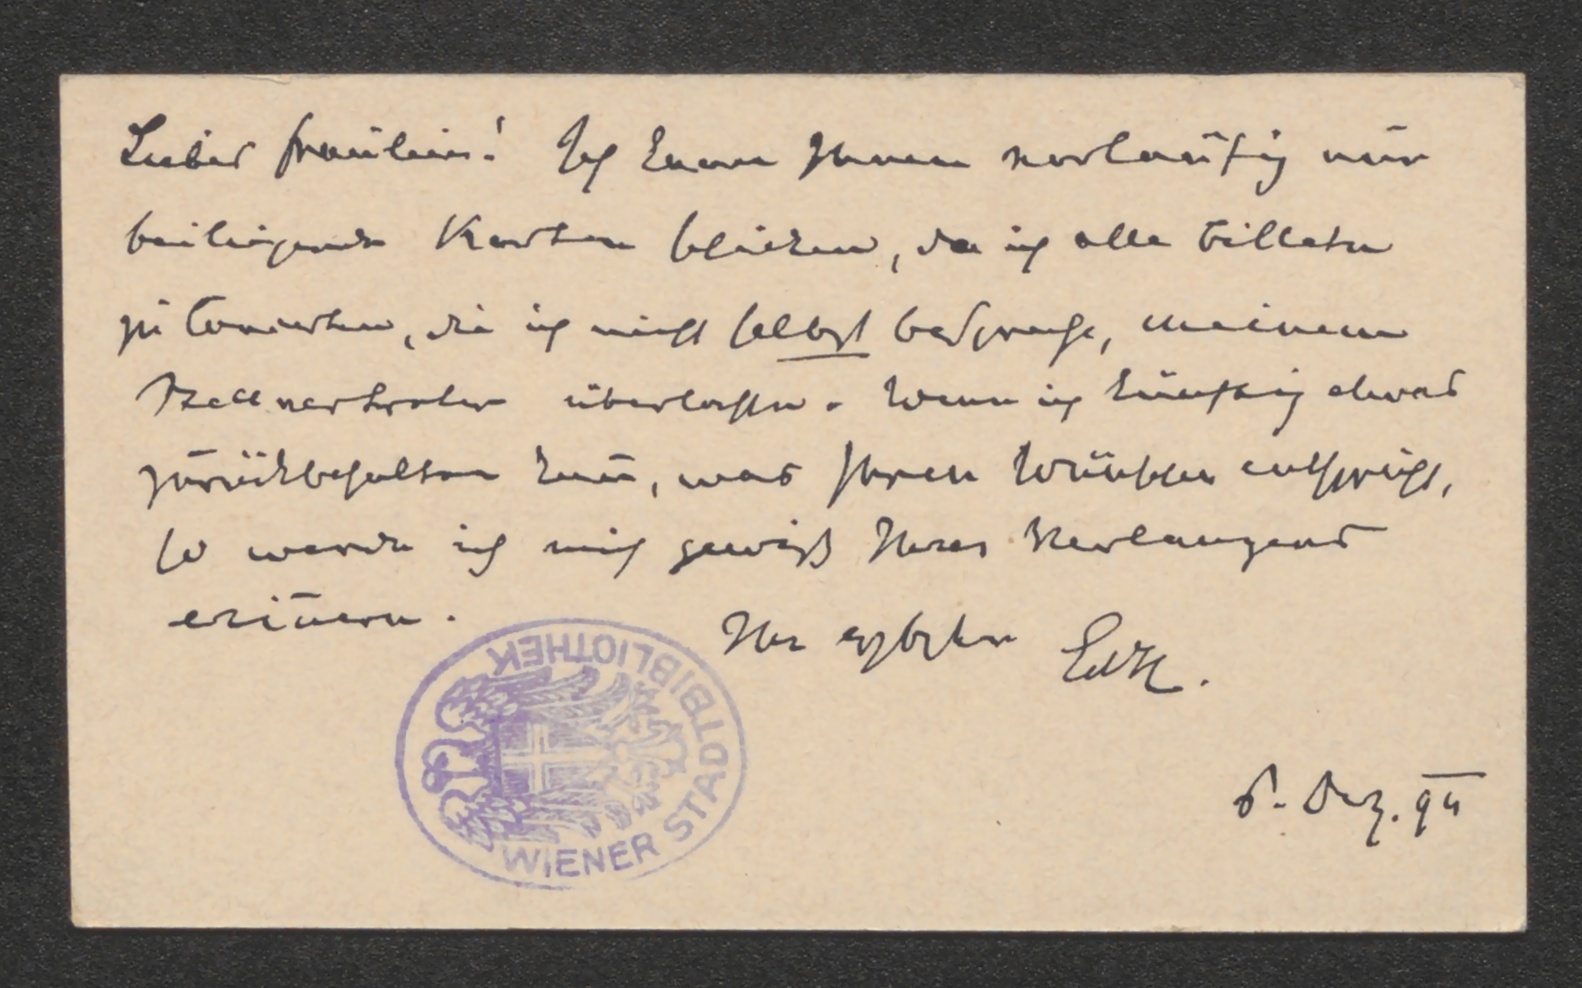 Liebes Fräulein! Ich kann Ihnen vorläufig nur
beiliegende Karten schicken, da ich alle Billeten
zu Concerten, die ich nicht selbst bespreche, meinem
Stellvertreter überlasse. Wenn ich künftig etwas
zurückbehalten kann, was Ihren Wünschen entspricht,
so werde ich mich gewiß Ihres Verlangens
erinnern.
Ihr ergbstr EdH.
WIENER STADTBIBLIOTHEK
6. Dez. 94